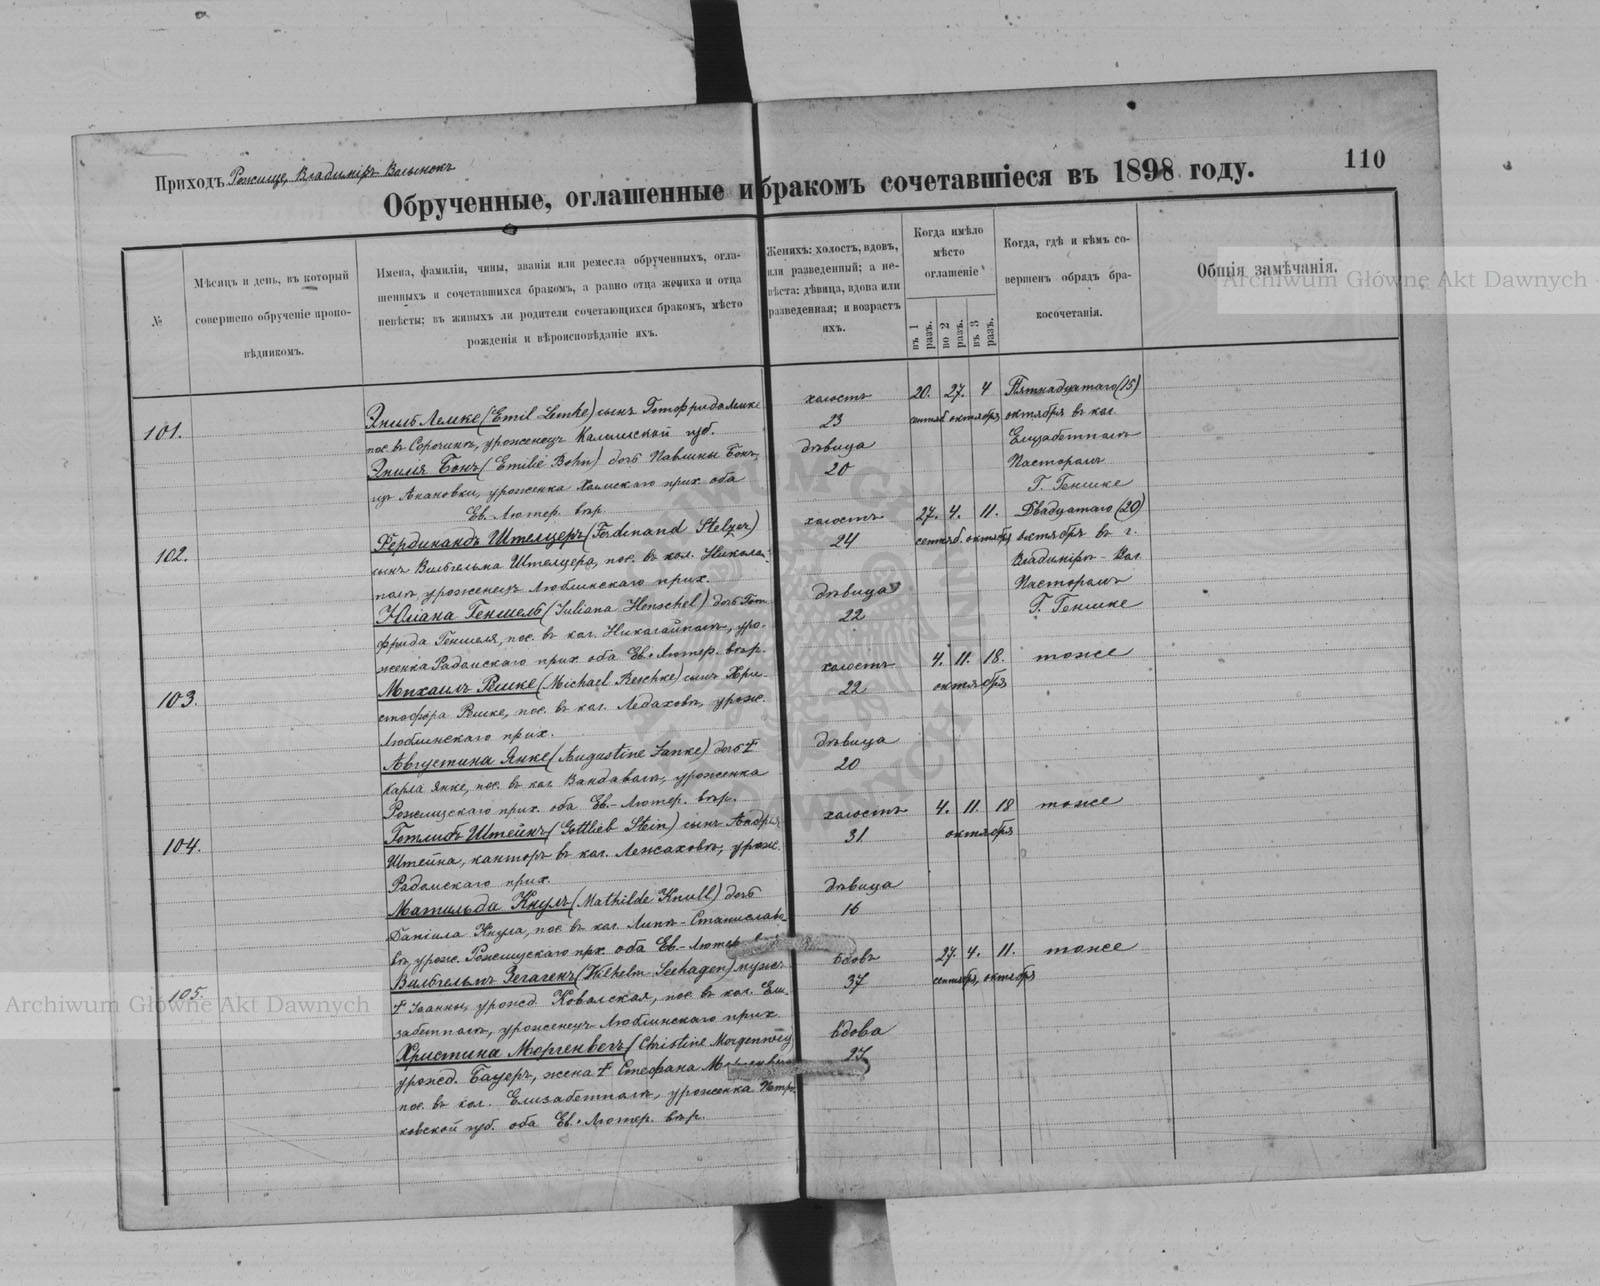 110
Приходъ Рожище, Владиміръ Волынскъ
Обрученные, оглашенные и бракомъ сочетавшіеся въ 1898 году.
№
Мѣсяцъ и день, въ который
совершено обрученіе пропо-
вѣдникомъ.
Имена, фамиліи, чины, званія или ремесла обрученныхъ, огла-
шенныхъ и сочетавшихся бракомъ, а равно отца жениха и отца
невѣсты; въ живыхъ ли родители сочетающихся бракомъ, мѣсто
рожденія и вѣроисповѣданіе ихъ.
Женихъ: холостъ, вдовъ,
или разведенный; а не-
вѣста: дѣвица, вдова или
разведенная; и возрастъ
ихъ.
Когда имѣло
мѣсто
оглашеніе
въ 1 разъ.
во 2 разъ.
въ 3 разъ.
Когда, гдѣ и кѣмъ со-
вершенъ обрядъ бра-
косочетанія.
Общія замѣчанія.
101.
Эмиль Лемке (Emil Lemke) сынъ Готфрида Лемке
пос. въ Сорочинъ, уроженецъ Калишской губ.
Эмилія Бонъ (Emilie Bohn) дочь Павлины Бонъ,
изъ Акановки, уроженка Холмскаго прих. оба
Ев.-Лютер. вѣр.
холостъ
23
дѣвица
20
20. 27. 4
сентяб. октября
Пятнадцатаго (15)
октября въ кол.
Елизабетполь
Пасторомъ
Г. Геншке
102.
Фердинандъ Штельцеръ (Ferdinand Stelzer)
сынъ Вильгельма Штельцера, пос. въ кол. Николай-
полъ, уроженецъ Люблинскаго прих.
Юліана Геншель (Juliana Henschel) дочь Гот-
фрида Геншеля, пос. въ кол. Николайполъ, уро-
женка Радомскаго прих. оба Ев.-Лютер. вѣр.
холостъ
24
дѣвица
22
27. 4. 11.
сентяб. октября
Двадцатаго (20)
октября въ г.
Владиміръ-Вол.
Пасторомъ
Г. Геншке
103.
Михаилъ Решке (Michael Reschke) сынъ Хри-
стофора Решке, пос. въ кол. Ледаховъ, урож.
Люблинскаго прих.
Августина Янке (Augustine Janke) дочь †
Карла Янке, пос. въ кол. Вандаволь, уроженка
Рожищскаго прих. оба Ев.-Лютер. вѣр.
холостъ
22
дѣвица
20
4. 11. 18.
октября
тоже
104.
Готлибъ Штейнъ (Gottlieb Stein) сынъ Андрея
Штейна, канторъ въ кол. Лежаховъ, урож.
Радомскаго прих.
Матильда Кнулъ (Mathilde Knull) дочь
Даніила Кнула, пос. въ кол. Липъ-Станиславо-
въ, урож. Рожищскаго прх. оба Ев.-Лютер.
холостъ
31
дѣвица
16
4. 11. 18
октября
тоже
105.
Вильгельмъ Зегагенъ (Wilhelm Seehagen) мужъ
† Іоанны, урожд. Ковальская, пос. въ кол. Ели-
забетполь, уроженецъ Люблинскаго прих.
Христина Моргенвегъ (Christine Morgenweg
урожд. Бауеръ, жена † Стефана
пос. въ кол. Елизабетполь, уроженка Петро-
ковской губ. оба Ев.-Лютер. вѣр.
вдовъ
37
вдова
27
27. 4. 11.
сентября, октября
тоже
Archiwum Główne Akt Dawnych
Archiwum Główne Akt Dawnych